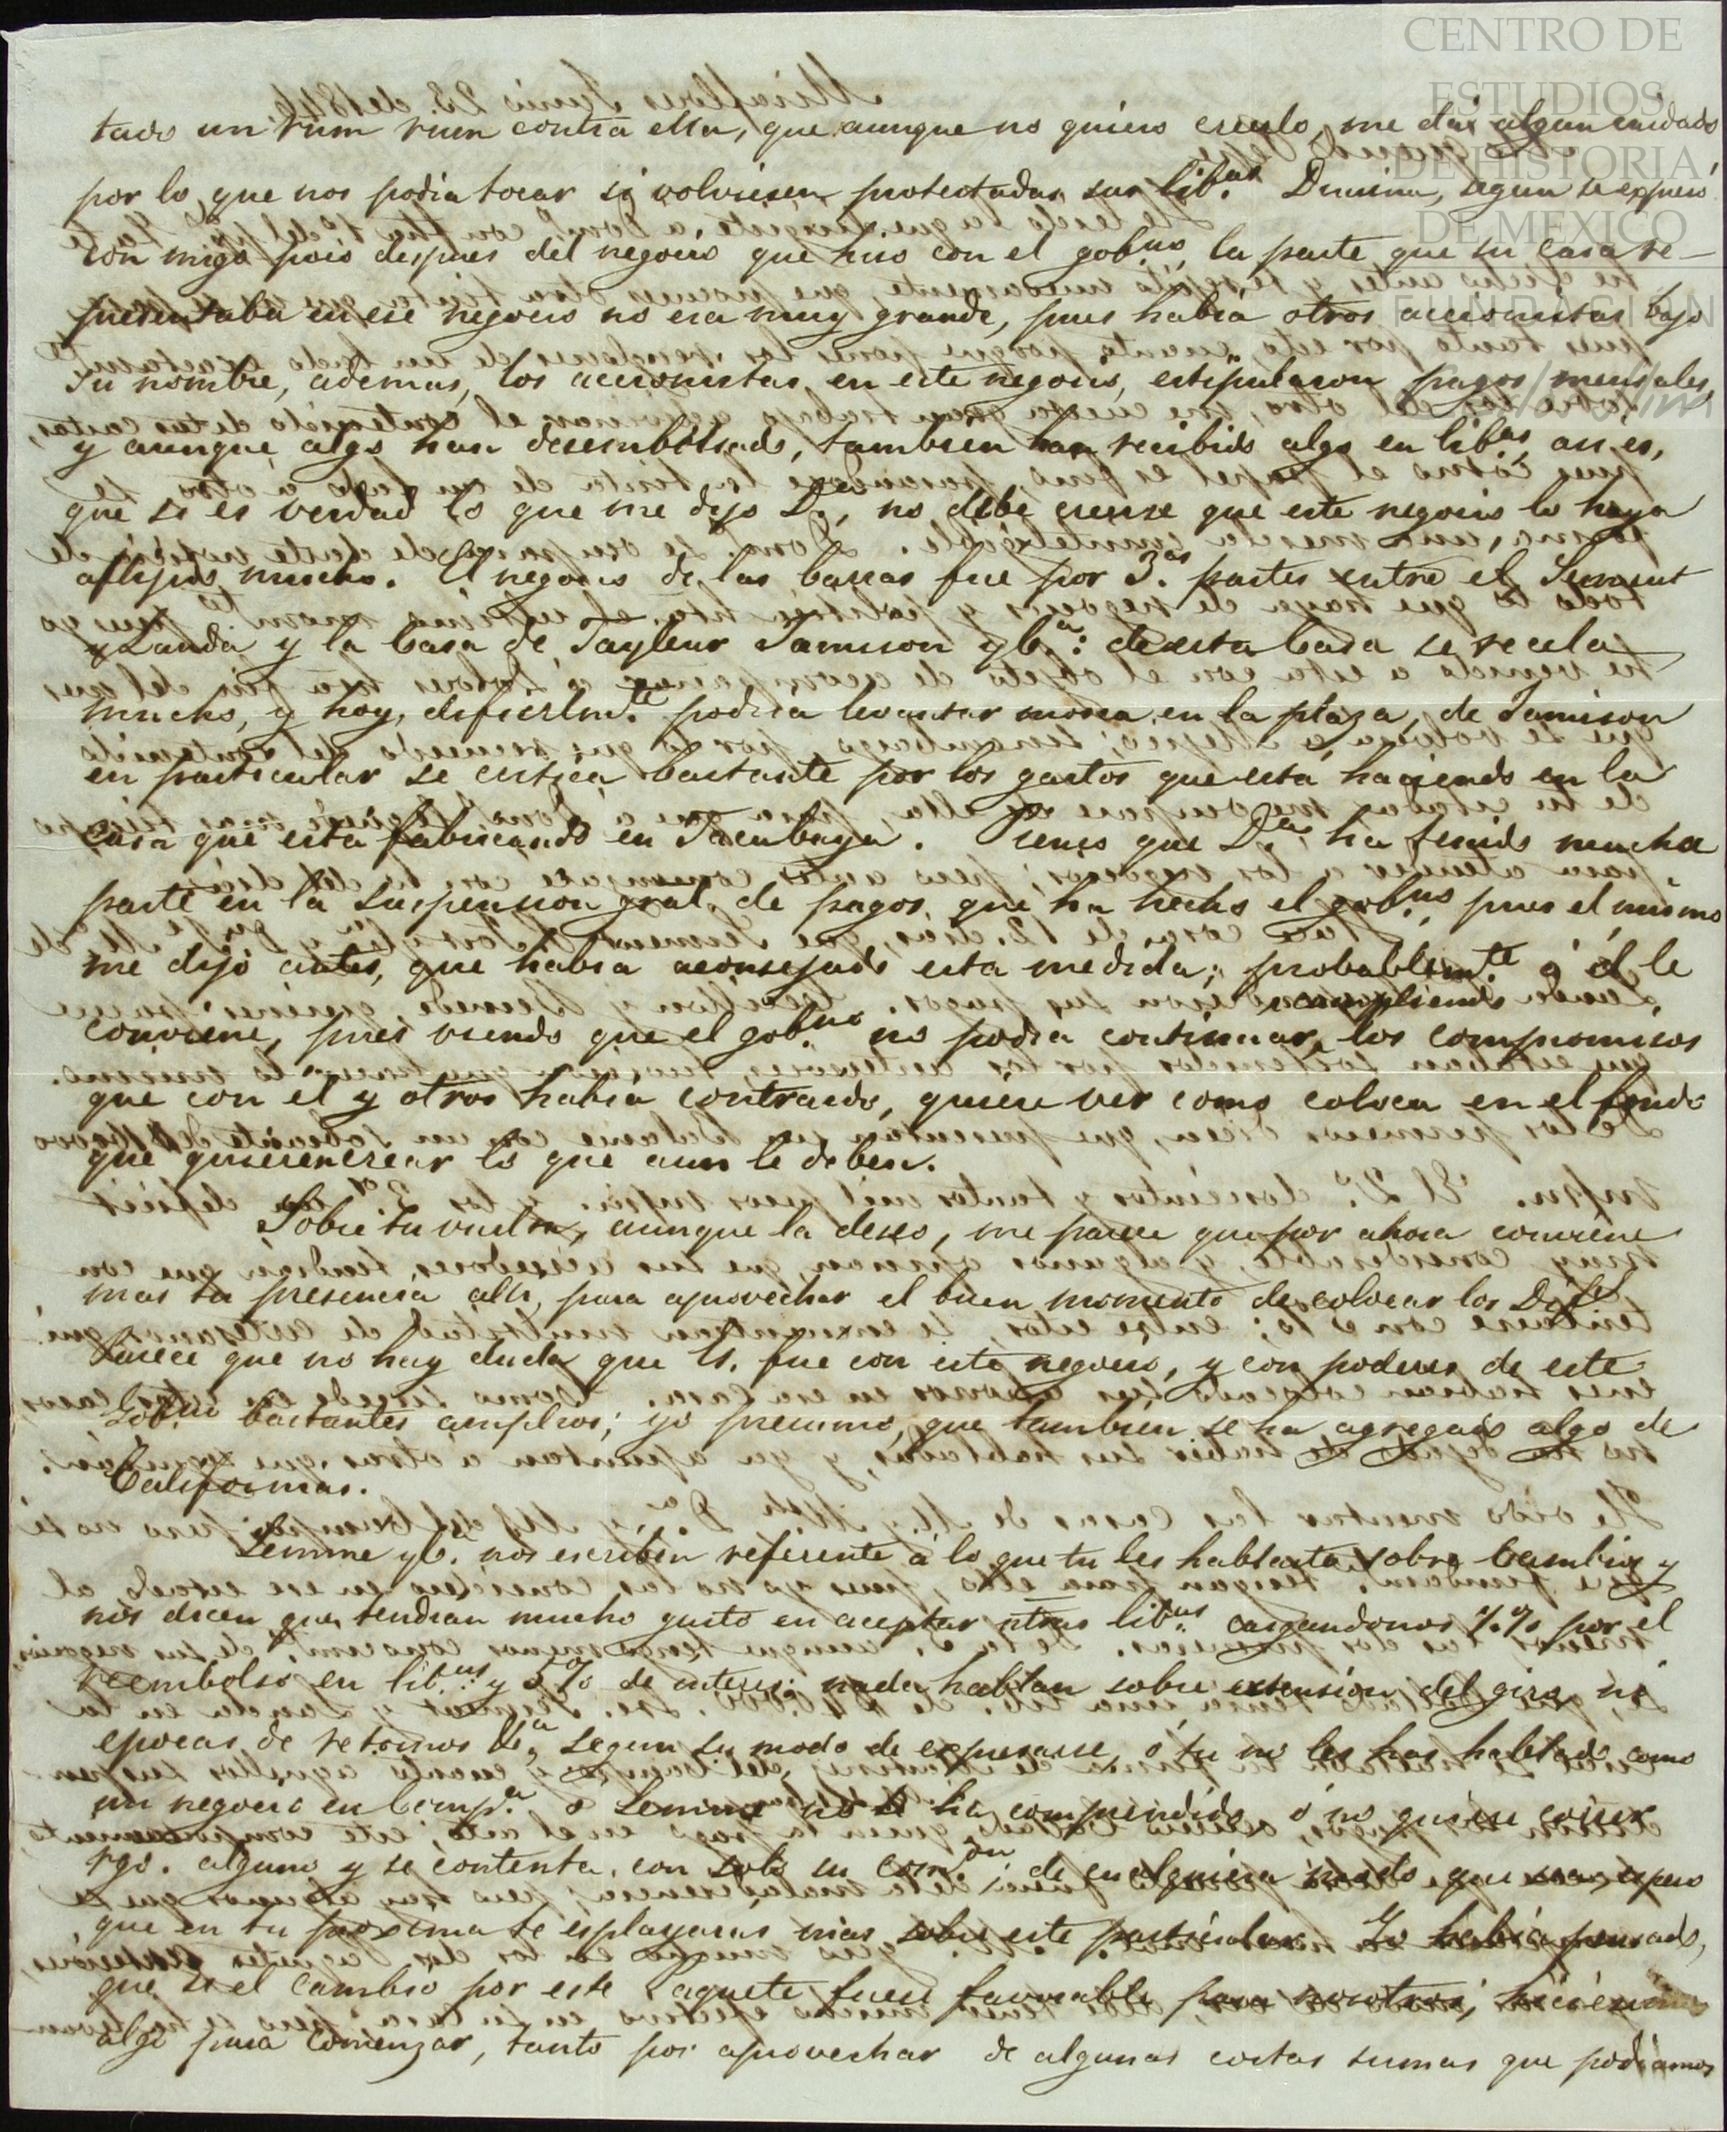 tado un rum rum contra ella, que aunque no quiero creerlo, me dá algun cuidado
por lo que nos podia tocar si volviesen protestadas sus lib.as Drusina, segun se espresó
con migo poco despues del negocio que hiso con el gob.no, la parte que su casa re-
presentaba en ese negocio no era muy grande, pues habia otros accionistas bajo
su nombre, ademas, los accionistas en este negocio, estipularon pagos mensales,
y aunque algo han desembolsado, tambien han recibido algo en lib.as, asi es,
que si es verdad lo que me dijo D.a, no debe creerse que este negocio lo haya
aflijido mucho. El negocio de las barras fue por 3.as partes entre el
y Landa y la Casa de Tayleur Jamison y C.a: de esta Casa se recela
mucho, y hoy, dificilm.te podria levantar mosca en la plaza, de Jamison
en particular se critica bastante por los gastos que está haciendo en la
casa que esta fabricando en Tacubaya. Creo que D.a ha tenido mucha
parte en la suspension gral. de pagos que ha hecho el gob.no pues el mismo
me dijo antes, que habia aconsejado esta medida; probablem.te á él le
cumpliendo
conviene, pues viendo que el gob.no no podia continuar los compromisos
que con él y otros habia contraido, quiere ver como coloca en el fondo
que quieren crear lo que aun le deben.
Sobre tu vuelta, aunque la deseo, me parece que por ahora conviene
mas tu presencia allá, para aprovechar el buen momento de colocar los Dif.s
Parece que no hay duda que Ls. fue con este negocio, y con poderes de este
Gob.no bastantes amplios; yo presumo, que tambien se ha agregado algo de
Californias.
Lemme y C.a nos escriben referente á lo que tu les hablaste sobre Cambios y
nos dicen, que tendrian mucho gusto en aceptar ntras lib.as cargandonos % por el
reembolso en lib.as y 5% de interes: nada hablan sobre estension del giro, ni
epocas de retornos &.a, segun su modo de expresarse, ó tu no les has hablado como
un negocio en Comp.a ó Lemme no te ha comprendido, ó no quiere correr
rgo. alguno y se contenta con solo su com.on; de cualquiera modo que sea, espero
que en tu proxima te esplayarás mas sobre este particular. Yo habia pensado,
que si el Cambio por este Paquete fuese favorable para nosotros, hiciesemos
algo para comenzar, tanto por aprovechar de algunas cortas sumas que podiamos
CENTRO DE
ESTUDIOS
DE HISTORIA
DE MEXICO
FUNDACIÓN